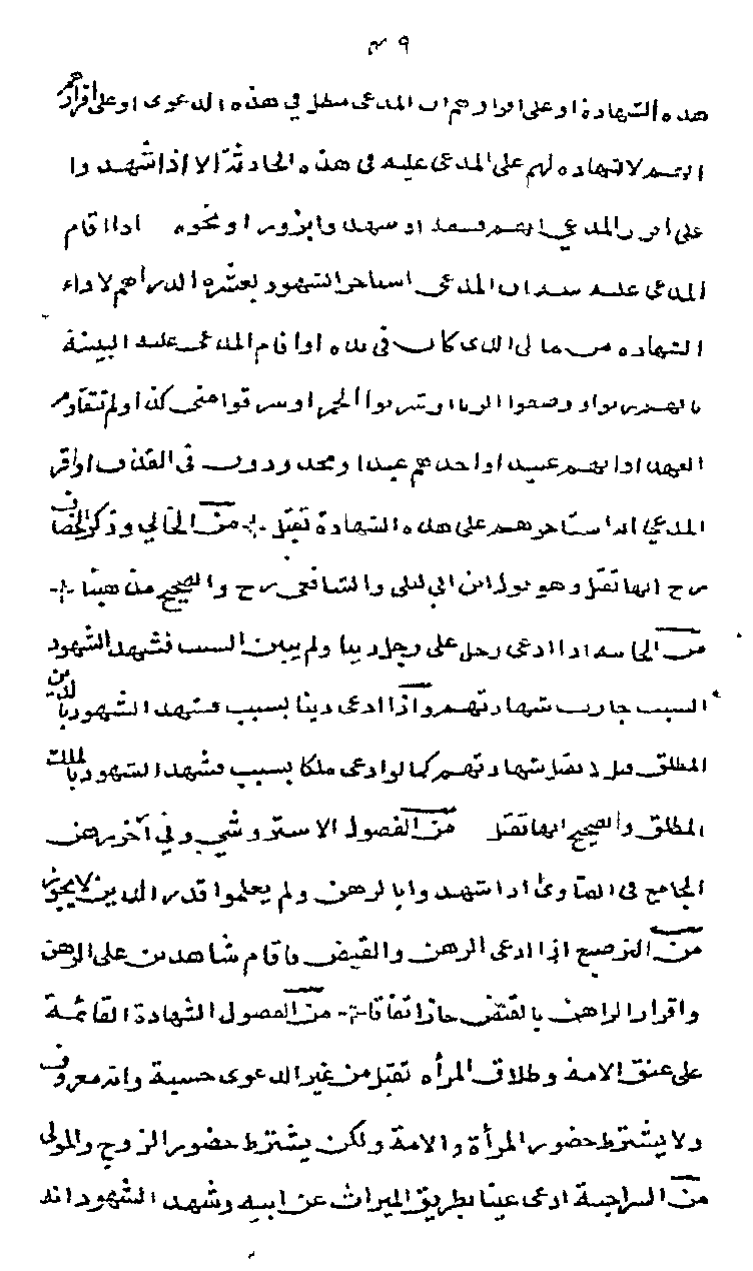 ٣٩
هذه الشهادة او على اقرارهم ان المدعى مبطل في هذه الدعوى او على اقرارهم
انهم لا شهادة لهم على المدعى عليه فى هذه الحادثة الا اذا شهدوا
على اقرار المدعي انهم فسقة او شهدوا بزور او نحوه اذا اقام
المدعى عليه بينة ان المدعى استاجر الشهود بعشرة الدراهم لاداء
الشهاده من مالى الذى كان فى يده او اقام المدعى عليه البينة
بانهم زنوا او وصفوا الزنا او شربوا الخمر او سرقوا منى كذا ولم تتقادم
العهد او انهم عبيد او احدهم عبد او محدودون فى القذف او اقر
المدعي انه استاجرهم على هذه الشهادة تقبل من الخانى وذكر الخصاف
رح انها تقبل وهو قول ابن ابى ليلى والشافعى رح والصحيح مذهبنا
من الخانيه اذا ادعى رجل على رجل دينا ولم يبين السبب فشهد الشهود
السبب جازت شهادتهم واذا ادعى دينا بسبب فشهد الشهود بالدين
المطلق قيل لا تقبل شهادتهم كما لو ادعى ملكا بسبب فشهد الشهود بالملك
المطلق والصحيح انها تقبل من الفصول الاستروشي وفي آخر رهن
الجامع فى الفتاوى اذا شهدوا بالرهن ولم يعلموا قدر الدين لا يجوز
من الترصيع اذا ادعى الرهن والقبض فاقام شاهدين على الرهن
واقرار الراهن بالقبض جاز اتفاقا من الفصول الشهادة القائمة
على عتق الامة وطلاق المرأه تقبل من غير الدعوى حسبة وانه معروف
ولا يشترط حضور المرأة والامة ولكن يشترط حضور الزوج والمولى
من السراجية ادعى عينا بطريق الميراث عن ابيه وشهد الشهود انه